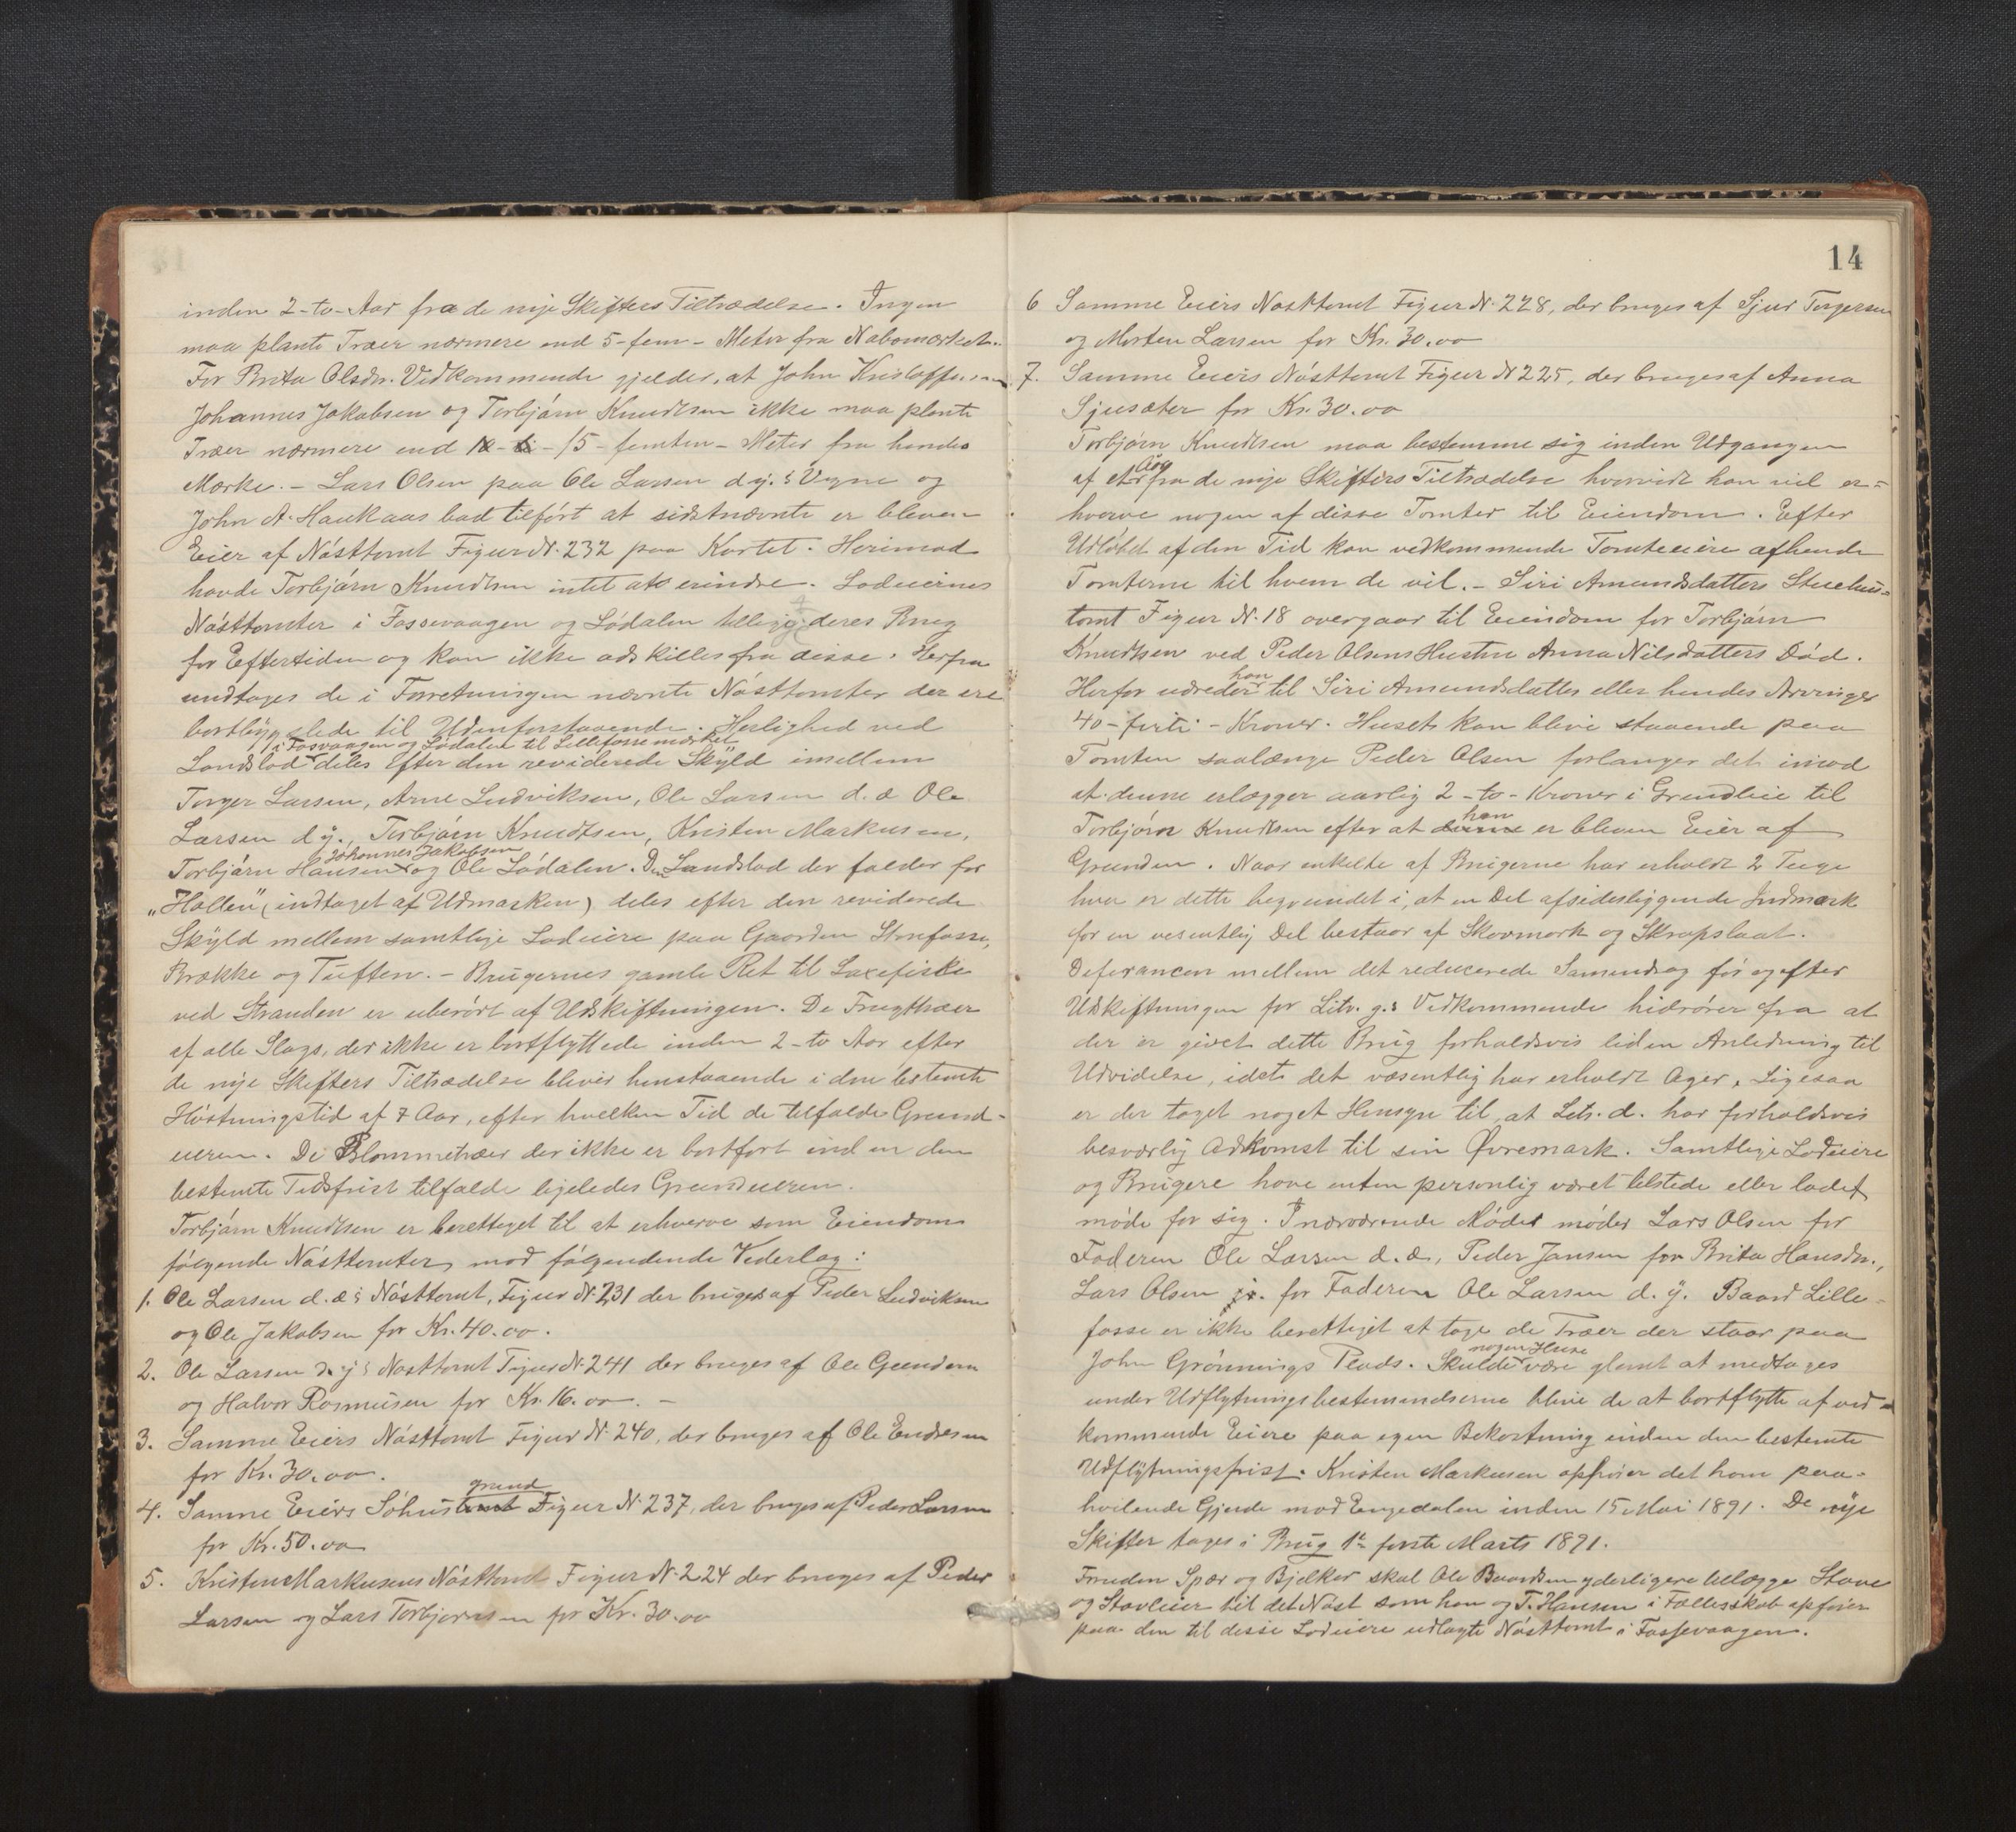 inden 2-to-Aar fra de nye Skifters Tiltrædelse. Ingen
maa plante Træer nærmere end 5-fem-Meter fra Nabomærket.
For Brita Olsdr. Vedkommende gjelder, at John Kristoffersen
Johannes Jakobsen og Torbjörn Knudtsen ikke maa plante
Træer nærmere end 15-femten-Meter fra hendes
Mærke. - Lars Olsen paa Ole Larsen d.y.s Vegne og
John A. Haukaas bad tilfört at sidstnævnte er bleven
Eier af Nösttomt Figur N. 232 paa Kartet. Herimod
havde Torbjörn Knudtsen intet at erindre. Lodeiernes
Nösttomter i Fossevaagen og Lödalen tilligger deres Brug
for Eftertiden og kan ikke adskilles fra disse. Herfra
undtages de i Forretningen nævnte Nösttomter der ere
bortbygslede til Udenforstaaende. Herlighed ved
i Fosvaagen og Lödalen til Lillefosse mærket
Landslod deles efter den reviderede Skÿld imellem
Torger Larsen, Arne Ludviksen, Ole Larsen d.æ Ole
Larsen d.ÿ., Torbjörn Knudtsen, Kristen Markusen,
Johannes Jakobsen
Torbjörn Hansen og Ole Lödalen. Den Landslod der falder for
"Hallen" (indtaget af Udmarken) deles efter den reviderede
Skÿld mellem samtlige Lodeiere paa Gaarden Storfosse,
Brække og Tuften. - Brugernes gamle Ret til Laxefiske
ved Stranden er uberört af Udskiftningen. De Frugttræer
af alle Slags, der ikke er bortflyttede inden 2-to Aar efter
de nye Skifters Tiltrædelse bliver henstaaende i den bestemte
Höstningstid af 7 Aar, efter hvilken Tid de tilfalde Grund-
eieren. De Blommetræer der ikke er bortfört inden den
bestemte Tidsfrist tilfalde ligeledes Grundeieren.
Torbjörn Knudtsen er berettiget til at erhverve som Eiendom
fölgende Nösttomter mod fölgendende Vederlag:
1. Ole Larsen d.æ's Nösttomt, Figur N. 231 der bruges af Peder Ludviksen
og Ole Jakobsen for Kr. 40.00.
2. Ole Larsen d.y's Nösttomt Figur N. 241 der bruges af Ole
og Halvor Rasmusen for Kr. 16.00. -
3. Samme Eiers Nösttomt Figur N. 240, der bruges af Ole Endresen
for Kr. 30.00.
grund
4. Samme Eiers Söhustomt Figur N. 237, der bruges af Peder Larsen
for Kr. 50.00
5. Kristen Markusens Nösttomt Figur N. 224 der bruges af Peder
Larsen og Lars Torbjörnsen for Kr. 30.00
14
6 Samme Eiers Nösttomt Figur N. 228, der bruges af Sjur Torgersen
og Morten Larsen for Kr. 30.00
7. Samme Eiers Nösttomt Figur N 225, der bruges af Anna
Sjusæter for Kr. 30.00
Torbjörn Knudtsen maa bestemme sig inden Udgangen
af fra de nye Skifters Tiltrædelse hvorvidt han vil er-
hverve nogen af disse Tomter til Eiendom. Efter
Udlöbet af den Tid kan vedkommende Tomteeiere afhende
Tomterne til hvem de vil. - Siri Amundsdatters Stuehus-
tomt Figur N. 18 overgaar til Eiendom for Torbjörn
Knudtsen ved Peder Olsens Hustru Anna Nilsdatters Död.
han
Herfor udreder til Siri Amundsdatter eller hendes Arvinger
40-firti-Kroner. Huset kan blive staaende paa
Tomten saalænge Peder Olsen forlanger det imod
at denne erlægger aarlig 2-to-Kroner i Grundleie til
han
Torbjörn Knudtsen efter at denne er bleven Eier af
Grunden. Naar enkelte af Brugerne har erholdt 2 Teige
hver er dette begrundet i, at en Del afsidesliggende Indmark
for en vesentlig Del bestaar af Skovmark og Skrapslaat.
Deferancen mellem det reducerede Samendrag för og efter
Udskiftningen for Litr. g.s Vedkommende hidrörer fra at
der er givet dette Brug forholdsvis liden Anledning til
Udvidelse, idet det væsentlig har erholdt Ager. Ligesaa
er der taget noget Hensyn til, at Litr. d. har forholdsvis
besværlig Adkomst til sin Øvremark. Samtlige Lodeiere
og Brugere have enten personlig været tilstede eller ladet
møde for sig. I nærværende Møde møder Lars Olsen for
Faderen Ole Larsen d.æ., Peder Jansen for Brita Hansdr.,
Lars Olsen jr. for Faderen Ole Larsen d.ÿ. Baard Lille-
fosse er ikke berettiget at tage de Træer der staar paa
nogen Huse
John Grønnings Plads. Skulde være glemt at medtages
under Udflytningsbestemmelserne blive de at bortflytte af ved-
kommende Eiere paa egen Bekostning inden den bestemte
Udflytningsfrist. Kristen Markusen opfører det ham paa-
hvilende Gjerde mod Engedalen inden 15 Mai 1891. De nye
Skifter tages i Brug 1ste første Marts 1891.
Foruden Spær og Bjelker skal Ole Baardsen yderligere tilægge Stave
og Stavleier til det Nøst som han og T. Hansen i Fællesskab opfører
paa den til disse Lodeiere udlagte Nösttomt i Fossevaagen.